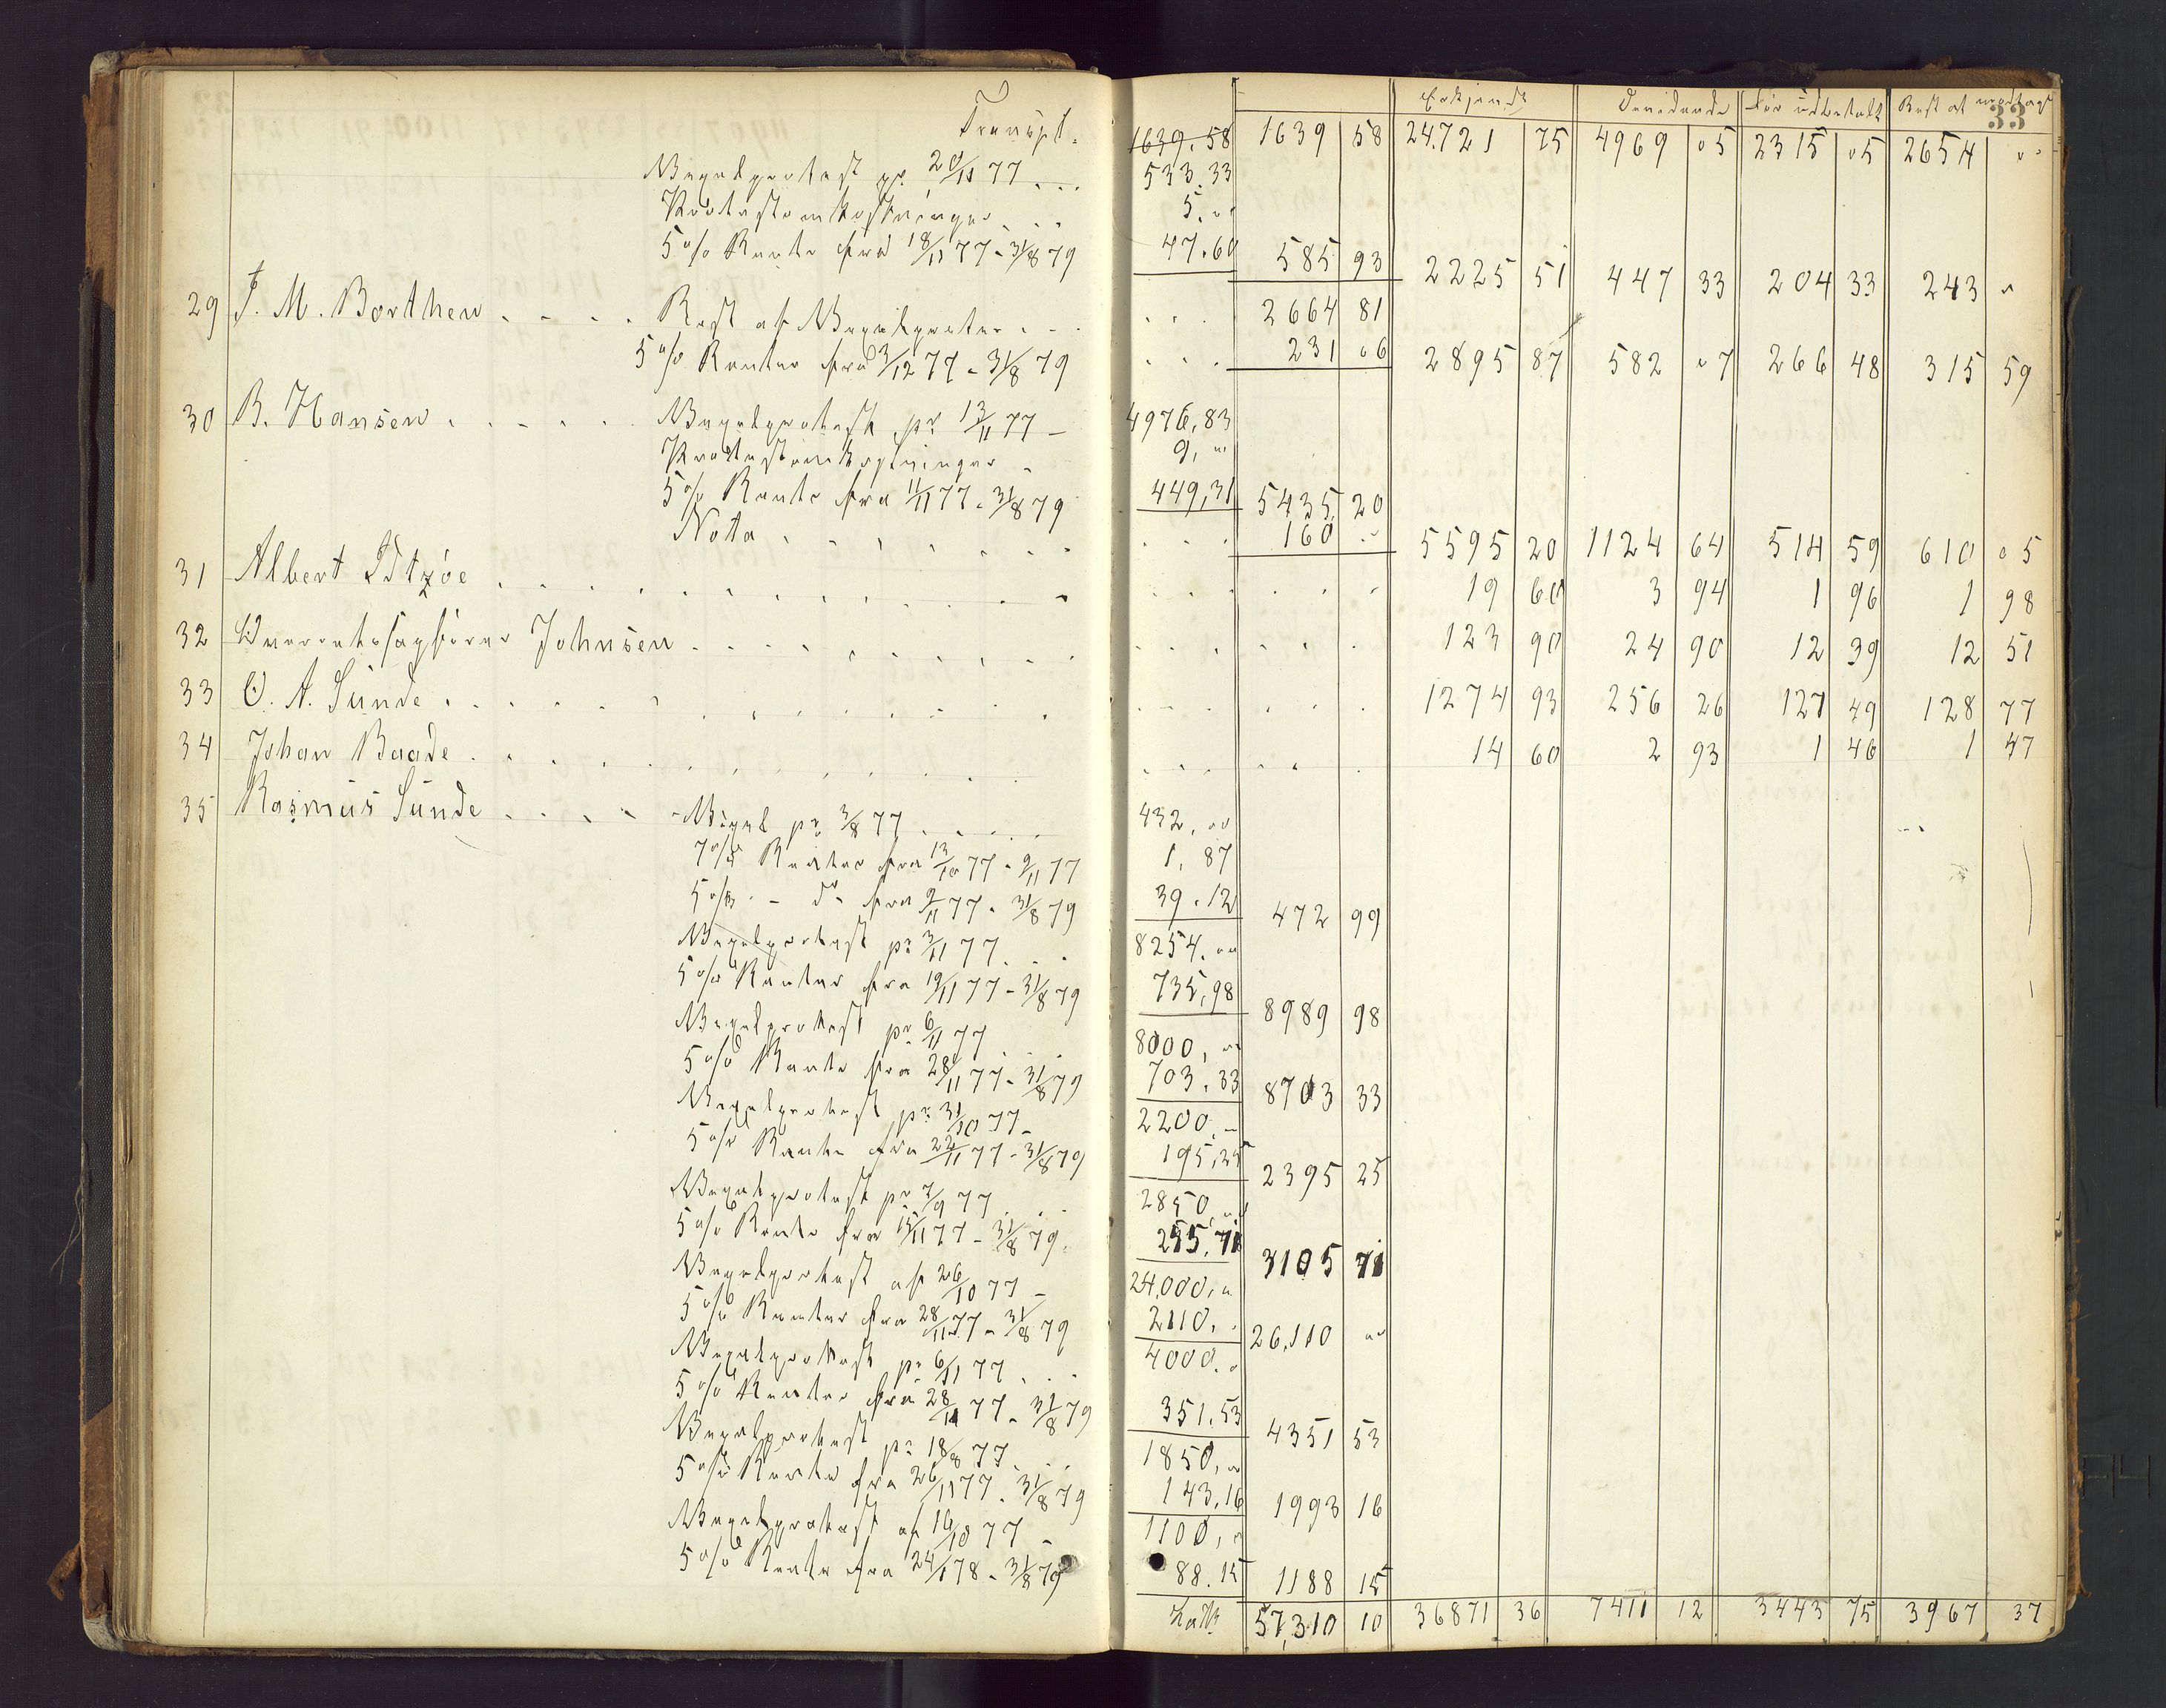 Erkjendt Dividende Før udbetalt Rest at modtage
33
Transpt. 1639.58 1639 58 24.721 75 4969 05 2315 05 2654 "
Vexelprotest pr 20/11 77 . . . 533.33
Protestomkostninger . . 5. "
5 o/o Rente fra 18/11 77 - 31/8 79 47.60 585 93 2225 51 447 33 204 33 243 "
29 J. M. Borthen . . . . Rest af Vexelprotest . . . 2664 81
5 o/o Renter fra 3/12 77 - 31/8 79 . . . 231 06 2895 87 582 07 266 48 315 59
30 B. Hansen . . . . . Vexelprotest pr 13/11 77 - 4976,83
Protestomkostninger - 9, "
5 o/o Rente fra 11/11 77 - 31/8 79 449,31 5435, 20
Nota . . . . . . 160 " 5595 20 1124 64 514 59 610 05
31 Albert . . . . . . . . 19 60 3 94 1 96 1 98
32 Overretssagfører Johnsen . . . . . . . 123 90 24 90 12 39 12 51
33 O. A. Sunde . . . . . . . . 1274 93 256 26 127 49 128 77
34 Johan Baade . . . . . . . . 14 60 2 93 1 46 1 47
35 Rasmus Sunde . . . . Vexel pr 3/8 77 . . . . 432, "
7 o/o Renter fra 13/10 77 - 9/11 77 1, 87
5 o/o - do fra 9/11 77 - 31/8 79 39.12 472 99
Vexelprotest pr 3/11 77 . . . 8254. "
5 o/o Renter fra 19/11 77 - 31/8 79 735,98 8989 98
Vexelprotest pr 6/11 77 8000, "
5 o/o Rente fra 28/11 77 - 31/8 79 703.33 8703 33
Vexelprotest pr 31/10 77 - 2200. -
5 o/o Rente fra 22/11 77 - 31/8 79 195,25 2395 25
Vexelprotest pr 7/9 77 . . . 2850, "
5 o/o Rente fra 15/11 77 - 31/8 79. 255.71 3105 71
Vexelprotest af 26/10 77 - 24,000, "
5 o/o Renter fra 28/11 77 - 31/8 79 2110, . 26,110 "
Vexelprotest pr 6/11 77 . . . 4000. "
5 o/o Renter fra 28/11 77 - 31/8 79 351.53 4351 53
Vexelprotest pr 18/8 77 . . . 1850, "
5 o/o Rente fra 26/11 77 - 31/8 79 143,16 1993 16
Vexelprotest af 16/10 77 - 1100, "
5 o/o Rente fra 24/1 78 - 31/8 79 88.15 1188 15
Latr. 57,310 10 36871 36 7411 12 3443 75 3967 37